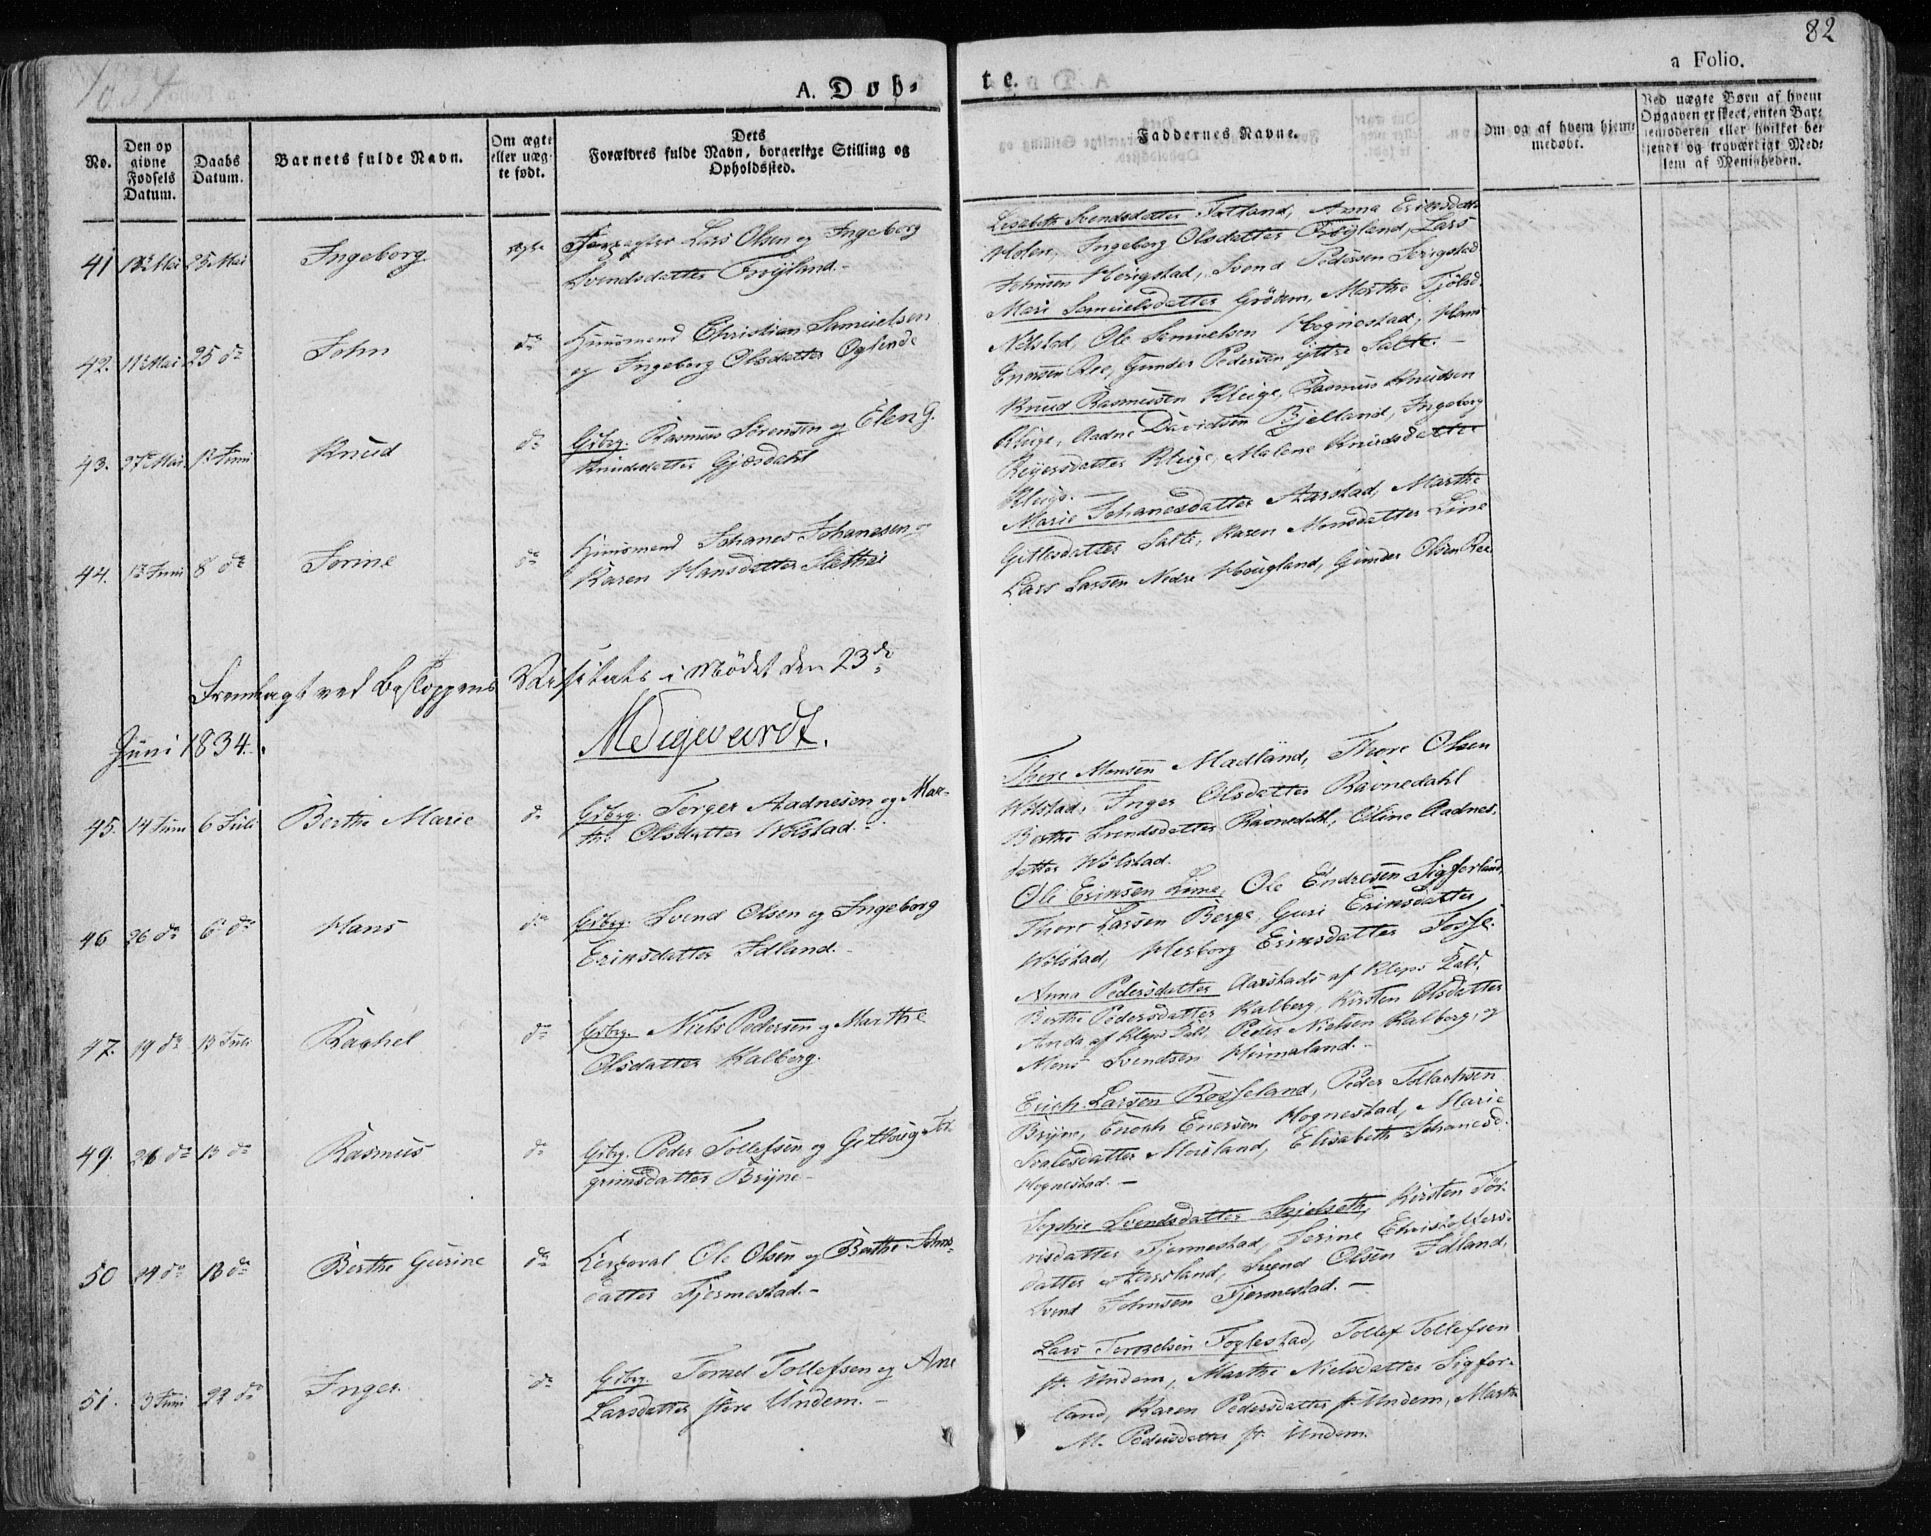 1834
82
A. Døb-
te.
a Folio.
No.
Den op
givne
Fødsels
Datum.
Daabs
Datum.
Barnets fulde Navn.
Om ægte
eller uæg-
te født.
Dets
Forældres fulde Navn, borgerlige Stilling og
Opholdssted.
Faddernes Navne.
Om og af hvem hjem-
medøbt.
Ved uægte Børn af hvem
Opgaven er skeet, enten Bar-
nemoderen eller hvilket be-
kjendt og troværdigt Med-
lem af Menigheden.
41 13 Mai 25 Mai Ingeborg ægte Lars Olsen og Ingeborg
Svendsdatter Frøyland.
Lisabeth Svendsdatter Tatland, Anna Eriksdatter
Holen, Ingeborg Olsdatter Frøyland, Lars
Johnsen Horigstad, Svend Pedersen Serigstad
42. 11 Mai 25 do John do Huusmand Christian Samuelsen
og Ingeborg Olsdatter Oglende
Mari Samuelsdatter Grødem, Marthe Tjølsd.
Nelstad, Ole Samuelsen Hognestad, Hans
Enersen Ree, Gunder Pedersen yttre Salte.
43. 27 Mai 1 Juni Knud do Grbrg. Rasmus Sørensen og Elen G.
Knudsdatter Gjesdahl
Knud Rasmusen Kluge, Rasmus Knudsen
Kluge, Aadne Davidsen Bjelland, Ingeborg
Reyersdatter Kluge, Malene Knudsdatter
Kluge.
44. 1 Juni 8 do Sorine do Huusmand Johanes Johanesen og
Karen Hansdatter Slethei
Marie Johanesdatter Aarstad, Marthe
Gitlesdatter Salte, Karen Monsdatter Line
Lars Larsen Nedre Hougland, Gunder Olsen Ree
Fremlagt ved Biskoppens Visitats i Mødet den 23de
Juni 1834.
45. 14 Juni 6 Juli Berthe Marie do Grbrg. Torger Aadnesen og Mar-
the Olsdatter Wølstad.
Thore Monsen Madland, Thore Olsen
Wølstad, Inger Olsdatter Ravnedahl
Berthe Svendsdatter Ravnedahl, Oline Aadnes-
datter Wølstad.
46 26 do 6 do Hans do Grbrg. Svend Olsen og Ingeborg
Eriksdatter Idland.
Ole Eriksen Lime, Ole Endresen Sigferland,
Thore Larsen Berge, Guri Eriksdatter
Wølstad, Herborg Eriksdatter Fosse.
47. 19 do 13 Juli Rachel do Grbrg. Niels Pedersen og Marthe
Olsdatter Kalberg.
Anna Pedersdatter Aarstad af Kleps Kald,
Berthe Pedersdatter Kalberg, Kirsten Olsdatter
Anda af Kleps Kald, Peder Nielsen Kalberg, og
Mons Svendsen Hinnaland.
49. 21 do 13 do Rasmus do Grbrg. Peder Tollefsen og Gitlaug Tor-
grimsdatter Bryne
Erich Larsen Rosseland, Peder Tollachsen
Bryne, Enoch Enersen Hognestad, Marie
Svalesdatter Mosland, Elisabeth Johanesd.
Hognestad.
50 24 do 13 do Berthe Gurine do Ole Olsen og Berthe Johns-
datter Fjermestad.
Sophie Svendsdatter Skjelseth, Kirsten Tør-
risdatter Fjermestad, Serine Christoffers-
datter Aarsland, Svend Olsen Idland,
Svend Johnsen Fjermestad.
51. 3 Juni 22 do Inger do Grbrg. Torkel Tollefsen og Ane
Larsdatter store Undem.
Lars Torkelsen Foglestad, Tollef Tollefsen
st. Undem, Marthe Nielsdatter Sigfer-
land, Karen Pedersdatter st. Undem, Marthe
M. Pedersdatter st. Undem.